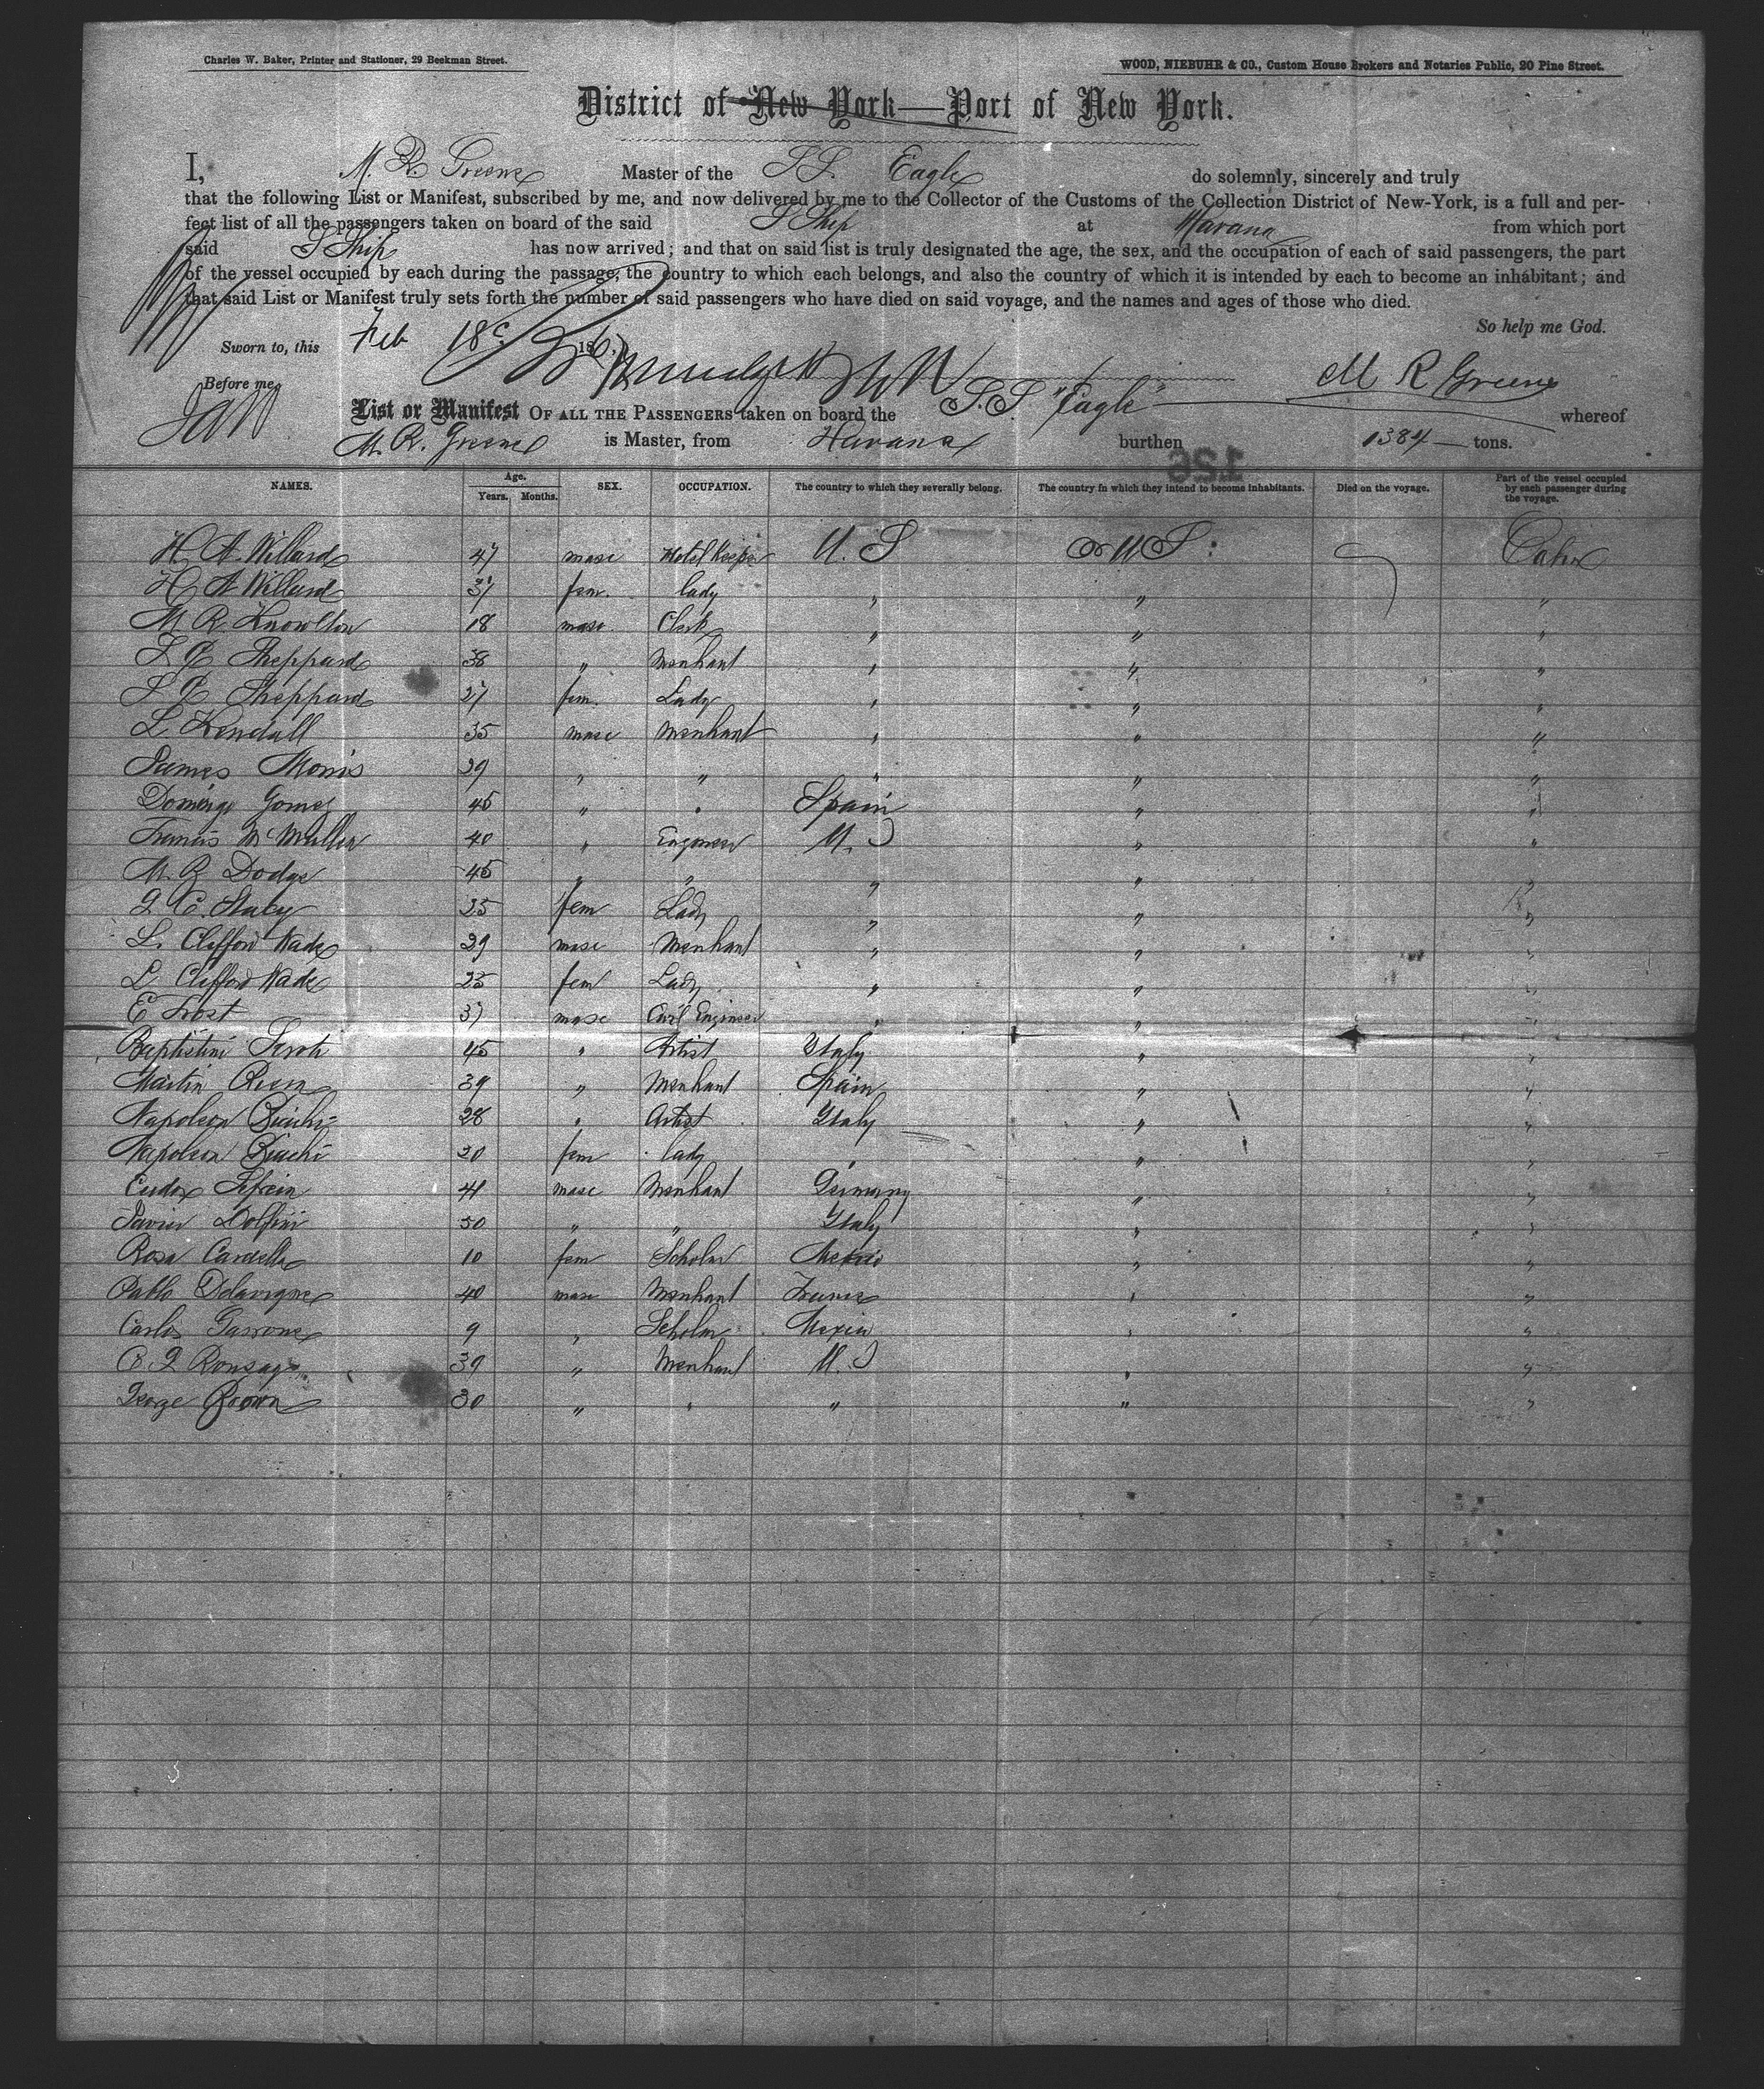 Charles W. Baker, Printer and Stationer, 29 Beekman Street.
WOOD, NIEBUHR & CO., Custom House Brokers and Notaries Public, 20 Pine Street.
District of New York—Port of New York.
I, M. R. Greene Master of the S.S. Eagle do solemnly, sincerely and truly
that the following List or Manifest, subscribed by me, and now delivered by me to the Collector of the Customs of the Collection District of New-York, is a full and per-
fect list of all the passengers taken on board of the said S Ship at Havana from which port
said S Ship has now arrived; and that on said list is truly designated the age, the sex, and the occupation of each of said passengers, the part
of the vessel occupied by each during the passage, the country to which each belongs, and also the country of which it is intended by each to become an inhabitant; and
that said List or Manifest truly sets forth the number of said passengers who have died on said voyage, and the names and ages of those who died.
So help me God.
Sworn to, this Feb 18 186
Before me, M R Greene
List or Manifest OF ALL THE PASSENGERS taken on board the S.S "Eagle" whereof
M. R. Greene is Master, from Havana burthen 1384 tons.
126
NAMES. Age. Years. Months. SEX. OCCUPATION. The country to which they severally belong. The country in which they intend to become inhabitants. Died on the voyage. Part of the vessel occupied by each passenger during the voyage.
H. A. Willard 47 masc Hotel Keeper U. S U S Cabin
H A Willard 37 fem. lady " " "
M. R. Knowlton 18 masc Clerk " " "
Sheppard 38 " Merchant " " "
Sheppard 27 fem. Lady " " "
L Kendall 35 masc Merchant " " "
James Morris 29 " " " " "
Domingo Gomez 45 " " Spain " "
Francis McMullen 40 " Engineer U. S " "
M. R Dodge 45 " " " " "
25 fem Lady " " "
L. Clifford Wade 29 masc Merchant " " "
L Clifford Wade 25 fem Lady " " "
E Frost 37 masc Civil Engineer " " "
Baptistini 45 " Artist Italy " "
Martin 39 " Merchant Spain " "
Napoleon 28 " Artist Italy " "
Napoleon 20 fem lady " " "
41 masc Merchant Germany " "
Dolfini 50 " " Italy " "
Rosa 10 fem Scholar Mexico " "
Pablo Delavigne 40 masc Merchant France " "
Carlos 9 " Scholar Mexico " "
39 " Merchant U. S " "
George Brown 30 " " " " "